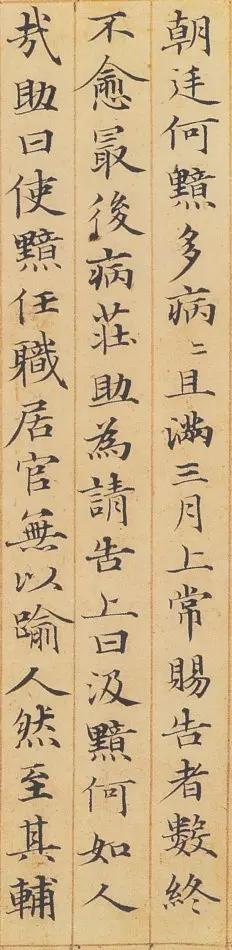 朝廷何黯多病〻且滿三月上常賜告者數終
不愈最後病莊助為請告上曰汲黯何如人
㢤助曰使黯任職居官無以踰人然至其輔